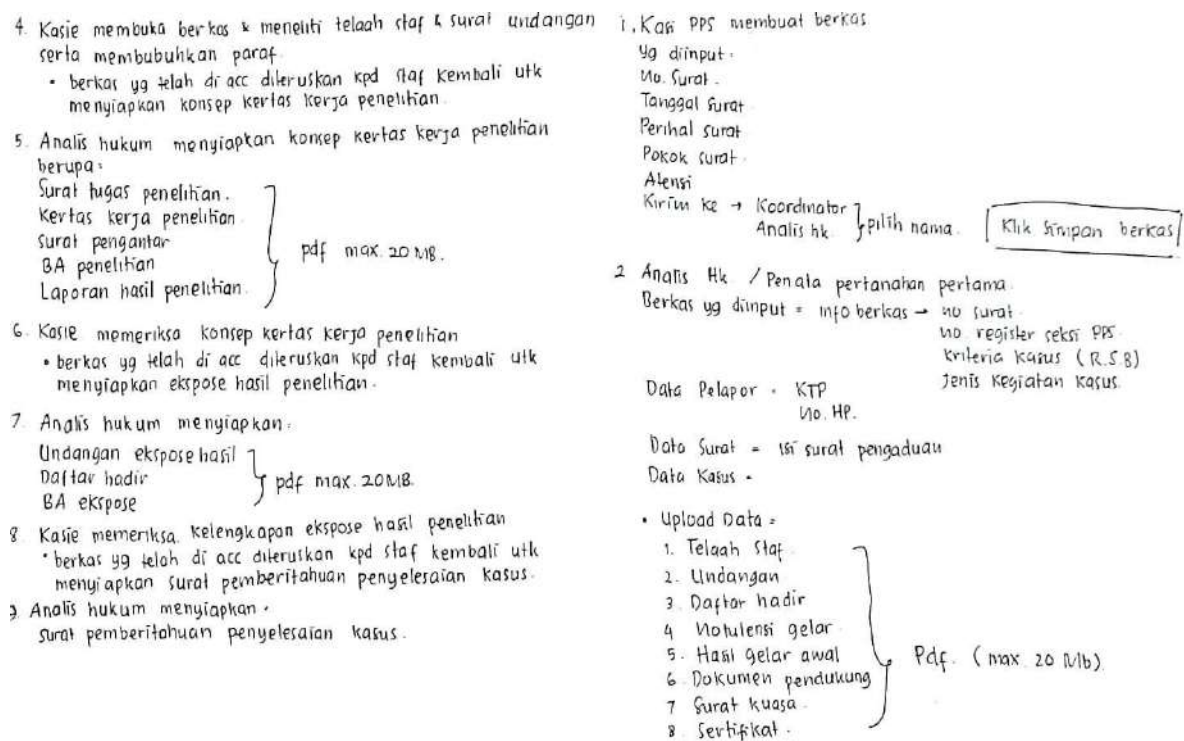 4. Kasie membuka berkas & meneliti telaah staf & surat undangan
serta membubuhkan paraf.
• berkas yg telah di acc diteruskan kpd staf kembali utk
menyiapkan konsep kertas kerja penelitian.
5. Analis hukum menyiapkan konsep kertas kerja penelitian
berupa:
Surat tugas penelitian.
Kertas kerja penelitian
Surat pengantar
BA penelitian
Laporan hasil penelitian.
pdf max. 20 MB.
6. Kasie memeriksa konsep kertas kerja penelitian
• berkas yg telah di acc diteruskan kpd staf kembali utk
menyiapkan ekspose hasil penelitian.
7. Analis hukum menyiapkan:
Undangan ekspose hasil
Daftar hadir
BA ekspose
pdf max. 20MB.
8. Kasie memeriksa kelengkapan ekspose hasil penelitian
• berkas yg telah di acc diteruskan kpd staf kembali utk
menyiapkan surat pemberitahuan penyelesaian kasus.
9. Analis hukum menyiapkan.
surat pemberitahuan penyelesaian kasus.
1. Kasi PPS membuat berkas
yg diinput:
No. Surat.
Tanggal surat
Perihal surat
Pokok surat.
Atensi
Kirim ke → Koordinator
Analis hk
pilih nama.
Klik Simpan berkas
2 Analis Hk / Penata pertanahan pertama.
Berkas yg diinput = info berkas → no surat.
no. register seksi PPS.
kriteria kasus (R.S.B)
Jenis kegiatan kasus.
Data Pelapor = KTP
No. HP.
Data Surat = isi surat pengaduan
Data Kasus =
• Upload Data =
1. Telaah Staf.
2. Undangan
3. Daftar hadir
4 Notulensi gelar.
5. Hasil gelar awal
6. Dokumen pendukung
7 Surat kuasa.
8. Sertifikat.
Pdf. (max. 20 Mb)